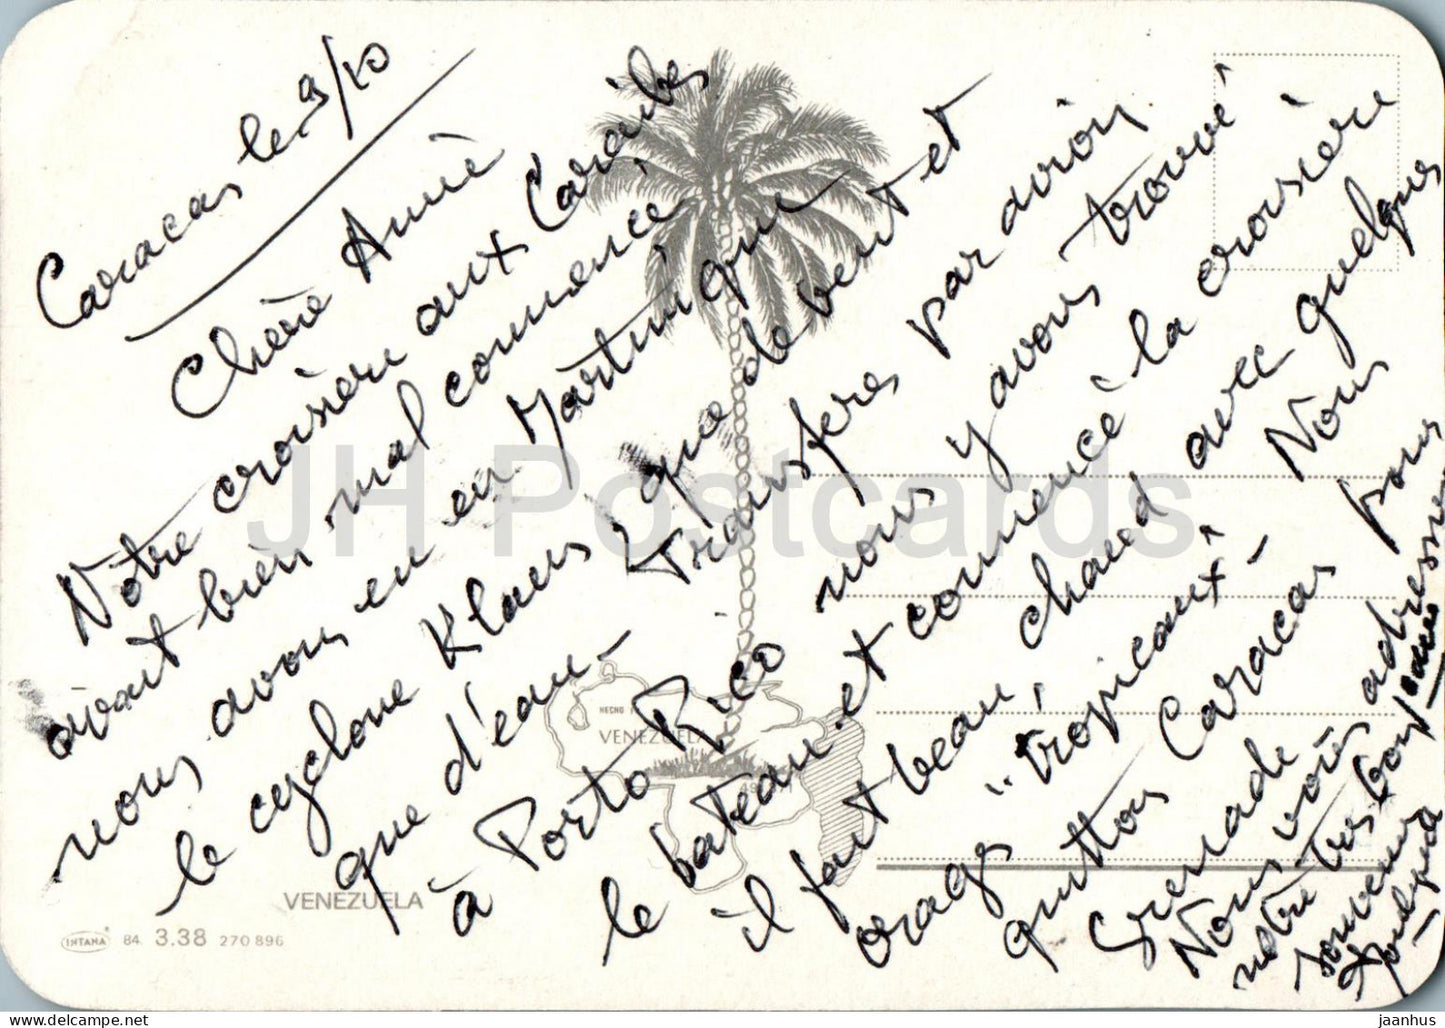 Caracas le 9/10
Chère Annie
Notre croisière aux Caraibes
ayant bien mal commencé,
nous avons eu en Martinique
le cyclone Klaus, que de vent et
que d'eau -
Transferes par avion
à Porto Rico nous y avons trouvé
le bateau et commencé la croisière
il fait beau, chaud avec quelques
orages "tropicaux" - Nous
quittons Caracas pour
Grenade
Nous vous adressons
notre très bon
souvenir
HECHO
VENEZUELA
VENEZUELA
INTANA 84 3.38 270896
JH Postcards
delcampe.net
jaanhus